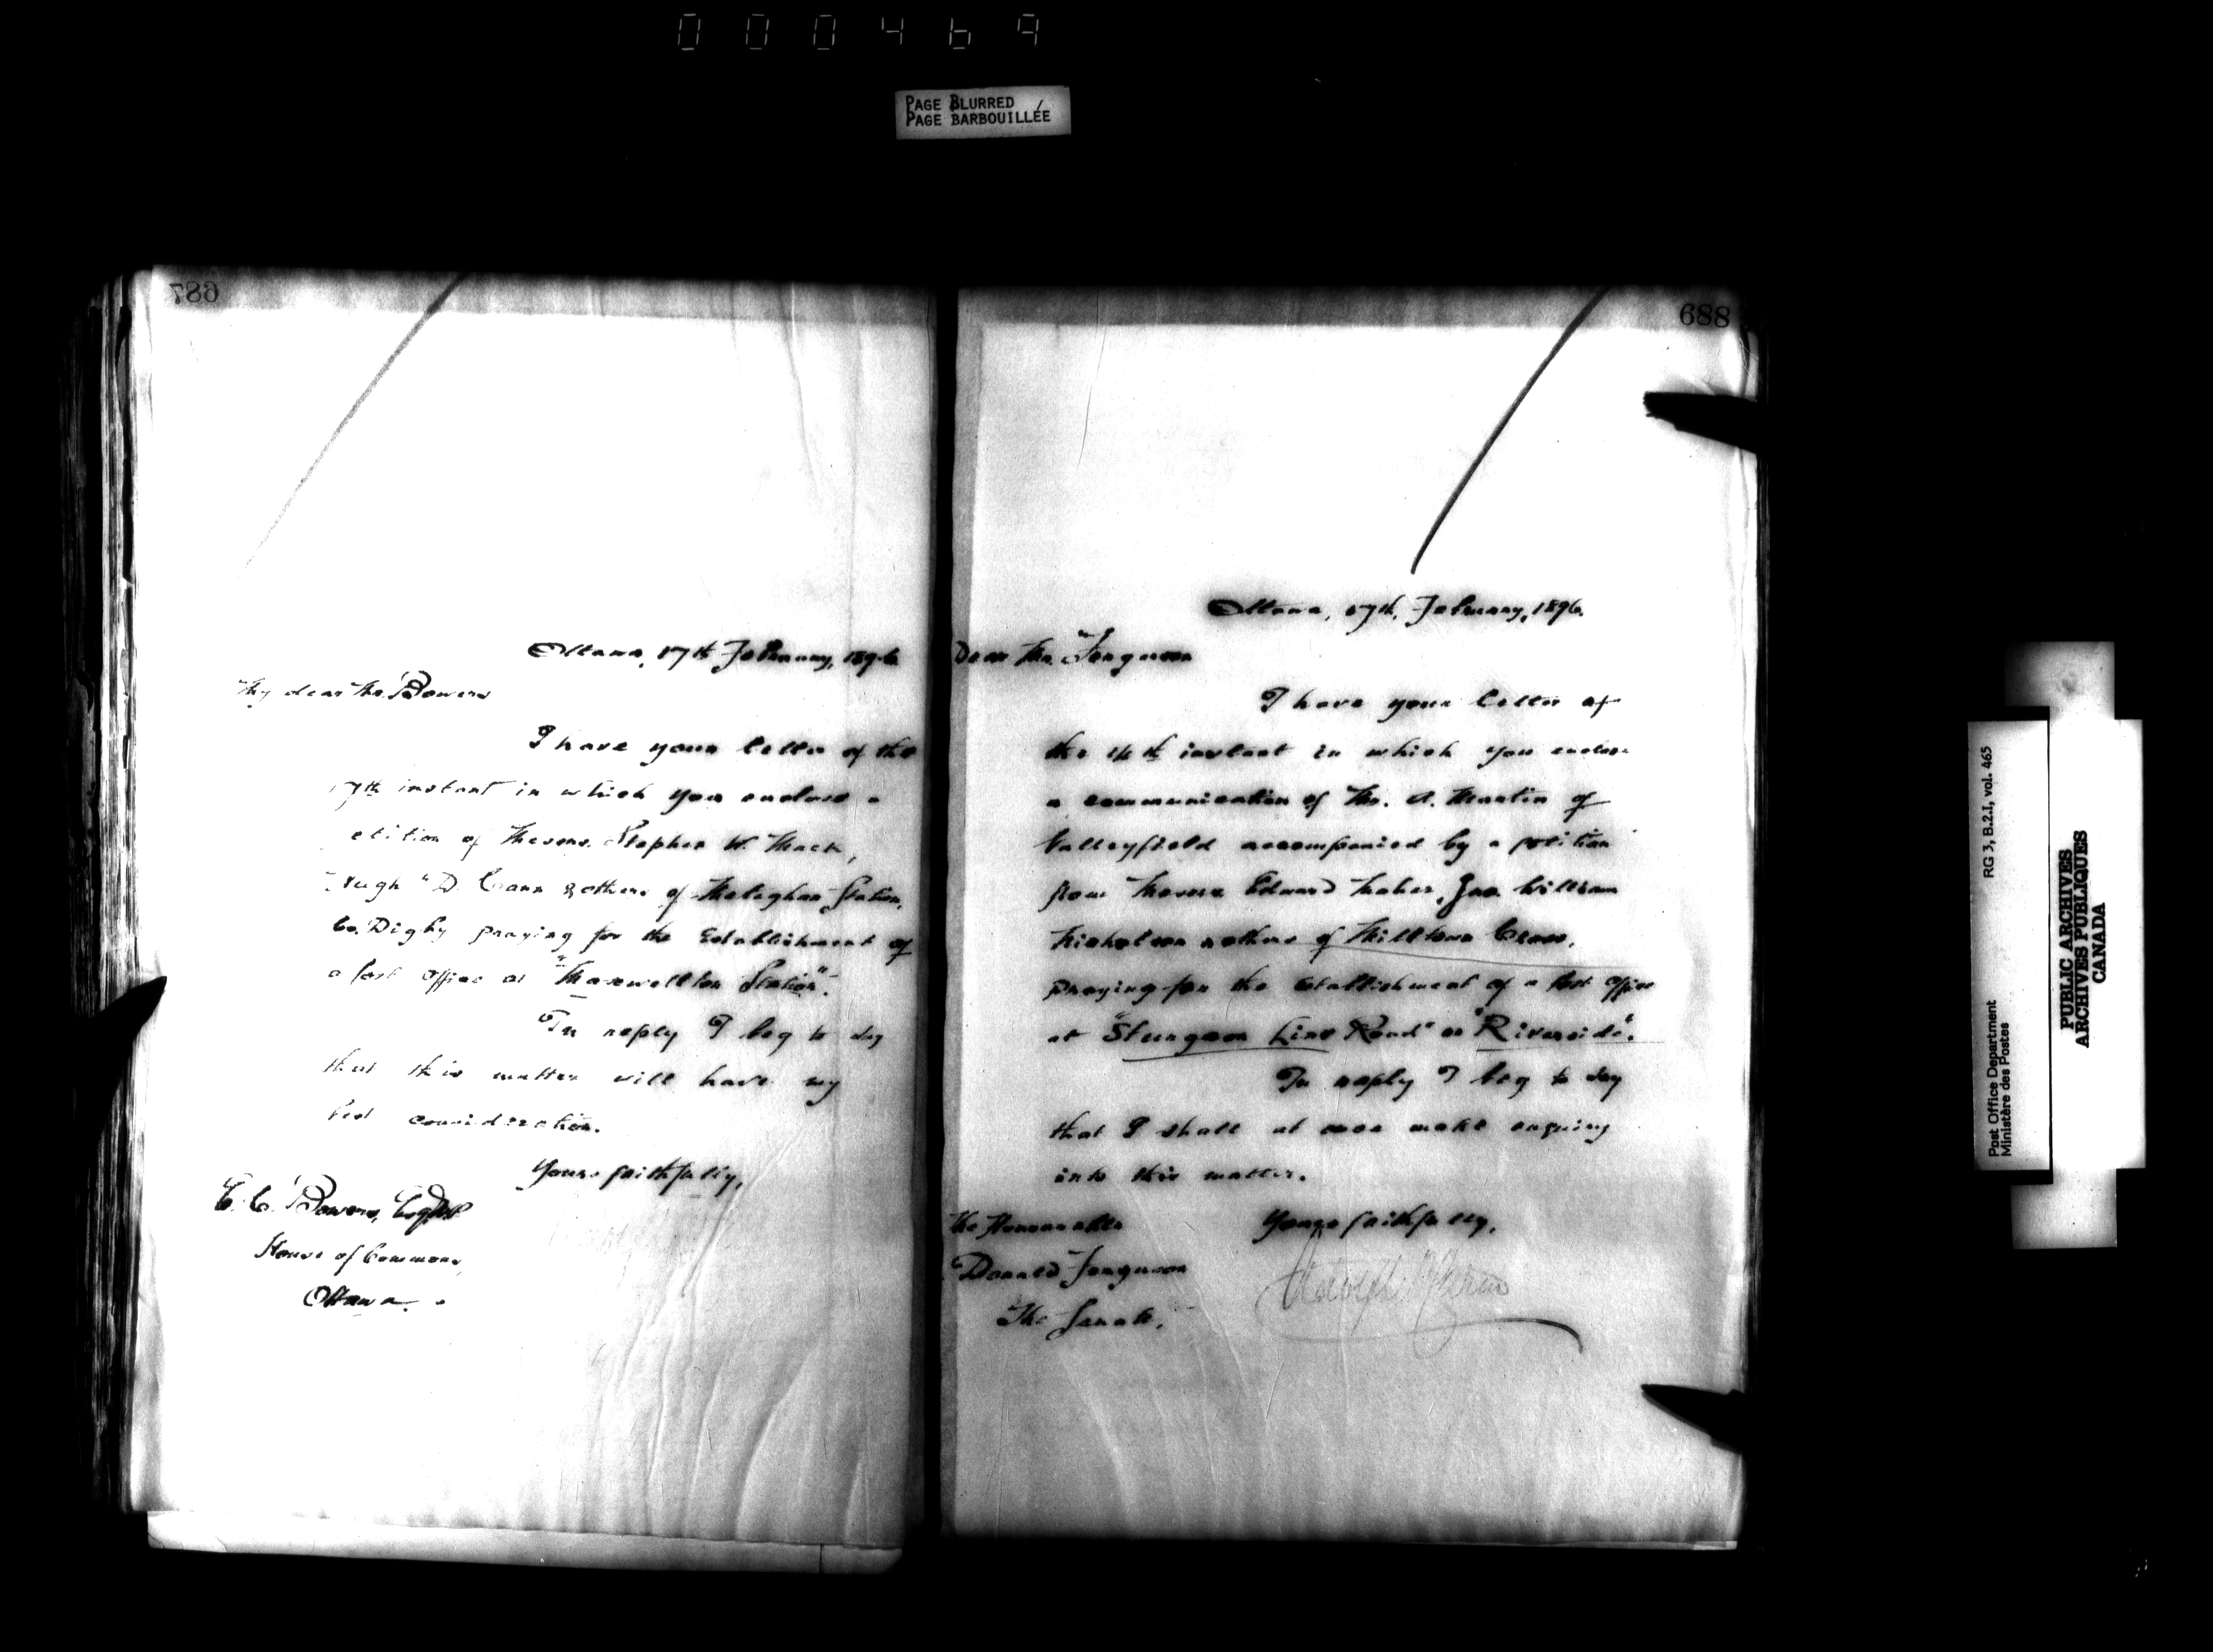 000469
PAGE BLURRED
PAGE BARBOUILLÉE
687
Ottawa, 17th February, 1896.
My dear Mr. Bowers
I have your letter of the
17th instant in which you enclose a
etition of Messrs. Stephen W. Mack,
Hugh D. Cann & others of Meteghan Station,
Co. Digby praying for the establishment of
a Post Office at "Maxwellton Station".
In reply I beg to say
that this matter will have my
best consideration.
Yours faithfully,
E. C. Bowers, Esq. M.P.
House of Commons,
Ottawa.
688
Ottawa, 17th, February, 1896.
Dear Mr. Ferguson
I have your letter of
the 14th instant in which you enclose
a communication of Mr. A. Martin of
Valleyfield accompanied by a petition
from Messrs Edward Maher, Jno. William
Nicholson & others of Milltown Cross,
praying for the establishment of a Post Office
at "Sturgeon Line Road" or "Riverside".
In reply I beg to say
that I shall at once make enquiry
into this matter.
Yours faithfully,
The Honourable
Donald Ferguson
The Senate.
RG 3, B.2.I, vol. 465
Post Office Department
Ministère des Postes
PUBLIC ARCHIVES
ARCHIVES PUBLIQUES
CANADA